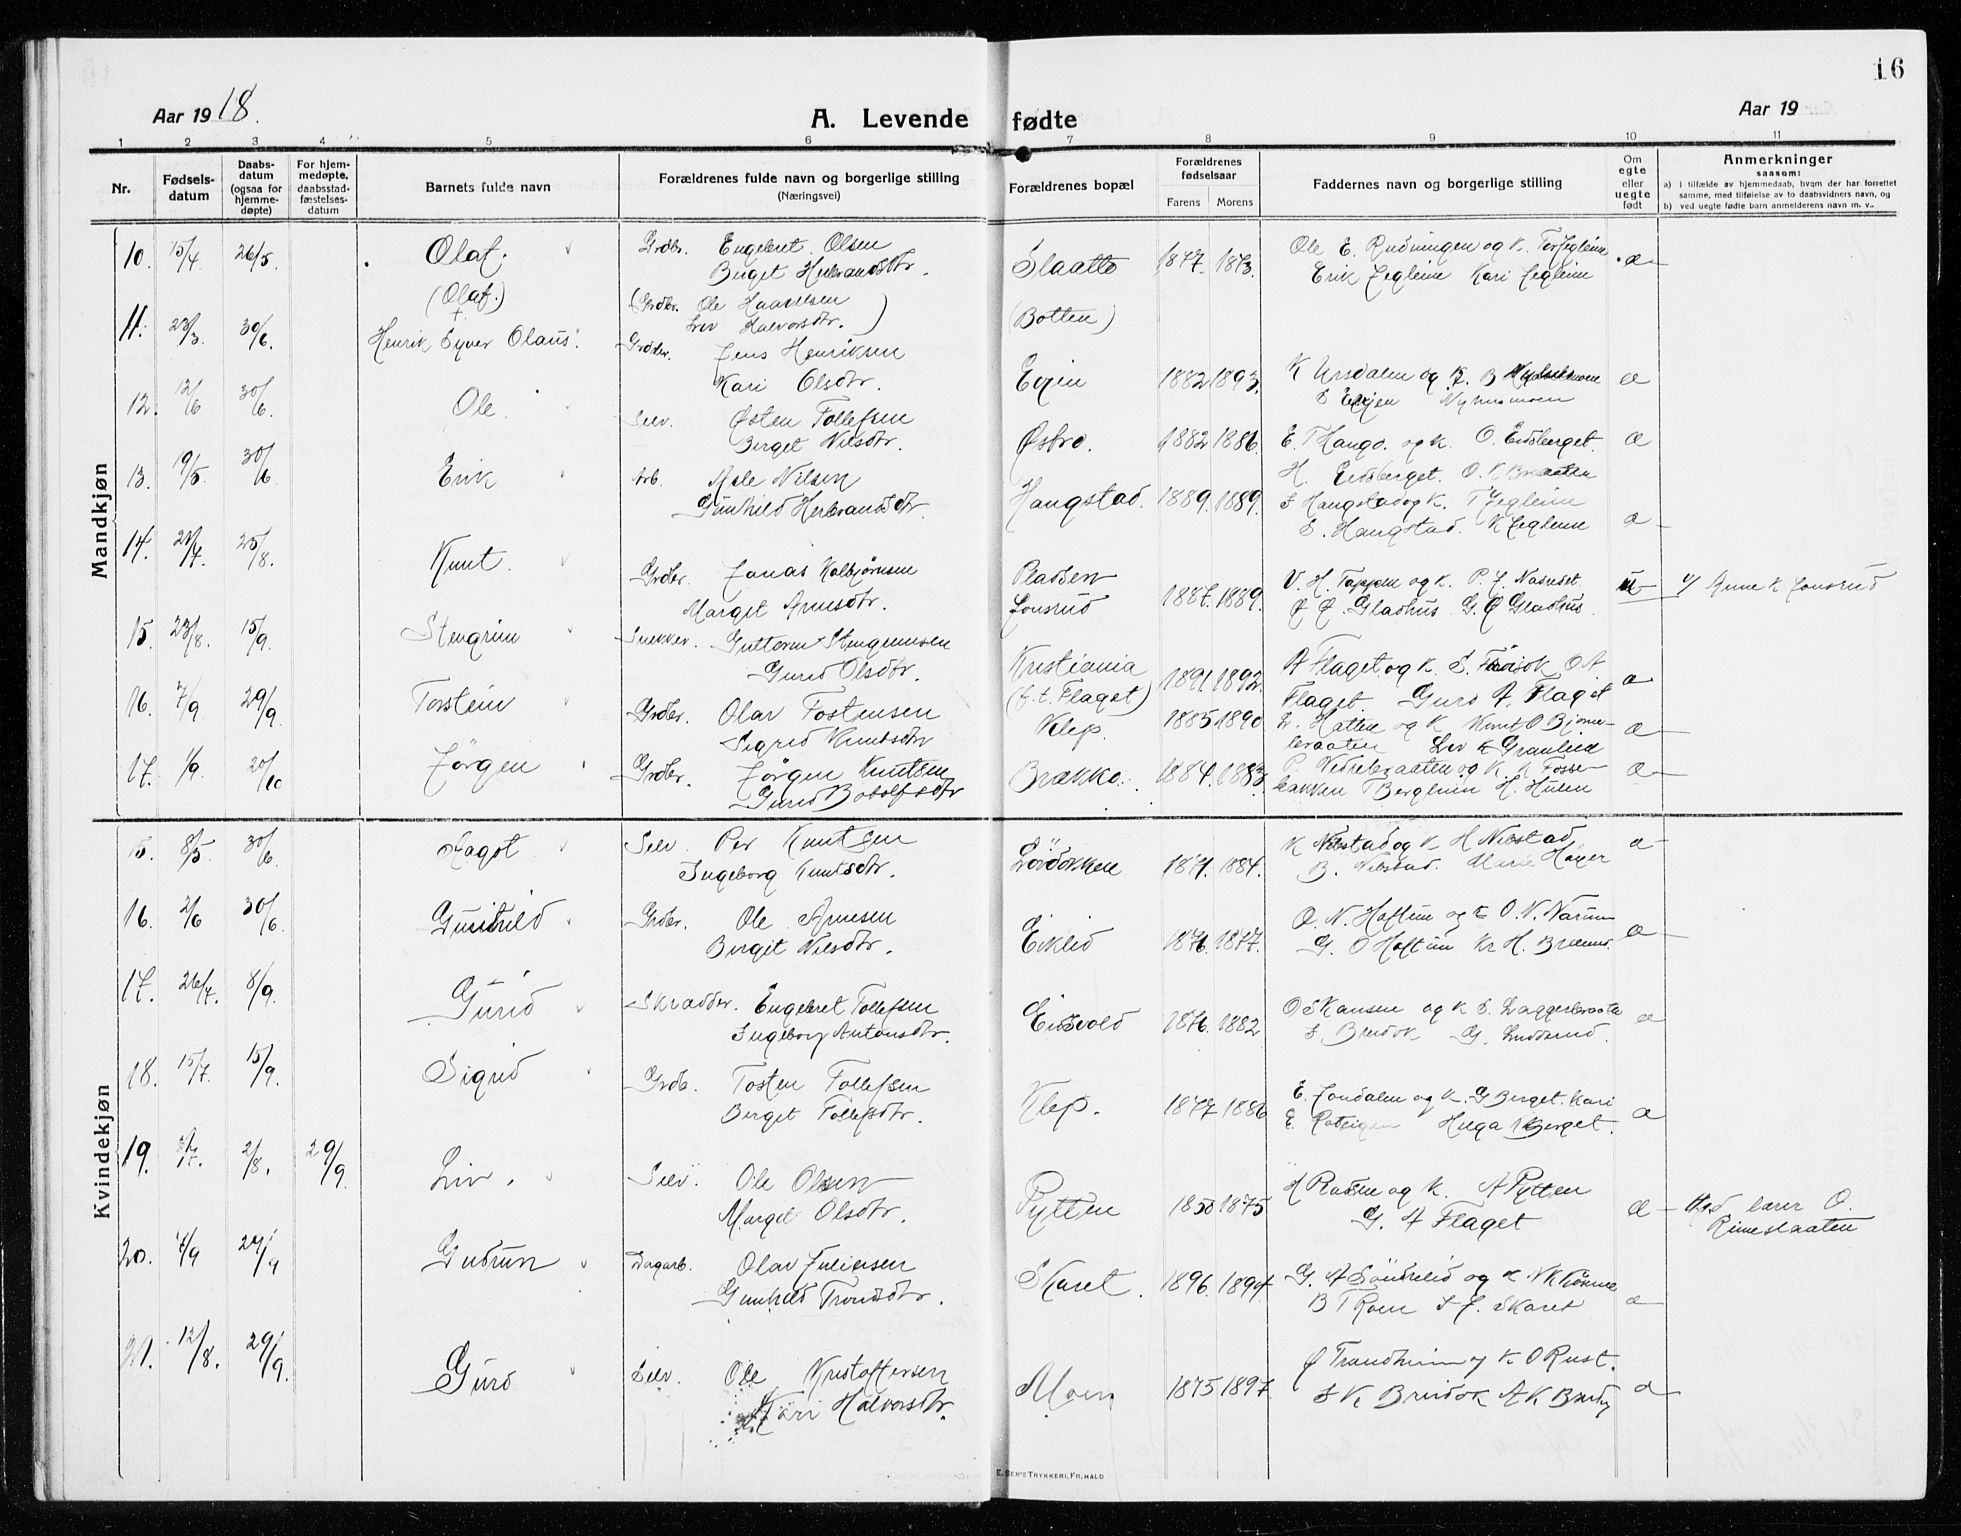 16
Aar 1918.
A. Levende fødte
Aar 19
1 2 3 4 5 6 7 8 9 10 11
Nr.
Fødselsdatum
Daabsdatum (ogsaa for hjemmedøpte)
For hjemmedøpte, daabsstadfæstelsesdatum
Barnets fulde navn
Forældrenes fulde navn og borgerlige stilling
(Næringsvei)
Forældrenes bopæl
Forældrenes fødselsaar
Farens Morens
Faddernes navn og borgerlige stilling
Om egte eller uegte født
Anmerkninger
saasom:
a) i tilfælde av hjemmedaab, hvem der har forrettet samme, med tilføielse av to daabsvidners navn, og
b) ved uegte fødte barn anmelderens navn m. v.
Mandkjøn
10. 15/4 26/5 Olaf. Grdbr. Engebret Olsen Slaatto 1877. 1873. Ole E. Rudningen og k. Tor Jegleim æ
Birget Herbrandsdtr. Erik Jegleim Kari Jegleim
(Olaf.) (Grdbr. Ole Haavelsen
Liv Halvorsdtr.) (Botten)
11. 23/3 30/6 Henrik Syver Olaus. Grdbr. Jens Henriksen
Kari Olsdtr. Evjen 1882 1893. K Ursdalen og k. B
S Evjen Nyhusmoen
12. 12/6 30/6 Ole Selv. Østen Tollefsen
Birget Nilsdtr. Østro. 1882 1886. E. T Haugo. og k. O. Eidsberget. æ
H. Eidsberget. O. K Braaten
13. 9/5 30/6 Erik Arb. Asle Nilsen
Gunhild Herbrandsdtr. Haugstad. 1889. 1889. S Haugstad og k. T Jegleim
S. Haugstad. K Jegleim æ
14. 25/8. Knut. Grdbr. Jonas Kolbjørnsen Pladsen
Marget Arnesdtr. Jonsrud 1887. 1889. V. H. Toppen og k. P. J. Nasuset. u v/ Anne K Jonsrud
J J. Gladhus G. J Gladhus.
15. 23/8. 15/9. Stengrim Snekker. Guttorm Stengrimsen
Gurid Olsdtr. Kristiania (f. t. Flaget) 1891. 1892. A Flaget og k. O A. æ
Flaget. Guro A. Flaget
16. 7/9 29/9. Torstein Grdbr. Olav Tostensen
Sigrid Knutsdtr Klep. 1885 1890 L. Hatten og k Knut O Bjørnebraaten Liv K Granlien æ
17. 1/9. 20/10 Jörgen Grdbr. Jörgen Knutsen
Gurid Botolfsdtr Brækko. 1884. 1883. P Vedrebraaten og k. A Fossebakken T Bergheim H. Hulen æ
Kvindekjøn
15. 8/5. 30/6. Aagot Selv. Per Knutsen
Ingeborg Knutsdtr. Lövdokken 1871. 1884. K Nilsstad og k H Nilsstad æ
B. Nilsstad. Marie Høyer
16. 2/6 30/6. Gunhild Grdbr. Ole Arnesen
Birgit Nilsdtr. Eiklid 1876. 1877. O. N. Haftun og k O. N. Narum æ
G. O Haftun Kr H. Bræmo.
17. 26/7. 8/9. Gurid Skrædder. Engebret Tollefsen
Ingeborg Antonsdtr. Eidsvold 1876. 1882. O Skansen og k S. Laggerbraaten æ
S. Breidok G.
18. 15/7. 15/9. Sigrid Grdb. Tosten Tollefsen
Berget Tollefsdtr. Klep. 1877 1886 E. Jondalen og k. G Berget. Kari æ
E. Helga K Berget.
19. 2/8. 29/9. Liv. Selv. Ole Olsen
Margit Olsdtr. Pytten 1850 1875 H Rudsen og k. A Pytten æ Ved lærer O.
G. A Flaget Rimeslaatten
20. 7/9 29/9 Gudrun Dagarb. Olav Juliussen
Gunhild Trondsdtr. Skaret. 1896. 1897. G. A Söndrelid og k. N K æ
B T Roen S J. Skaret
21. 12/8. 29/9. Guro Selv. Ole Kristoffersen
Kari Halvorsdtr. Moen 1875 1897. O Trondheim og k O Rust.
S K Breidok A K Breidok æ
E. SEM'S TRYKKERI, FR.HALD